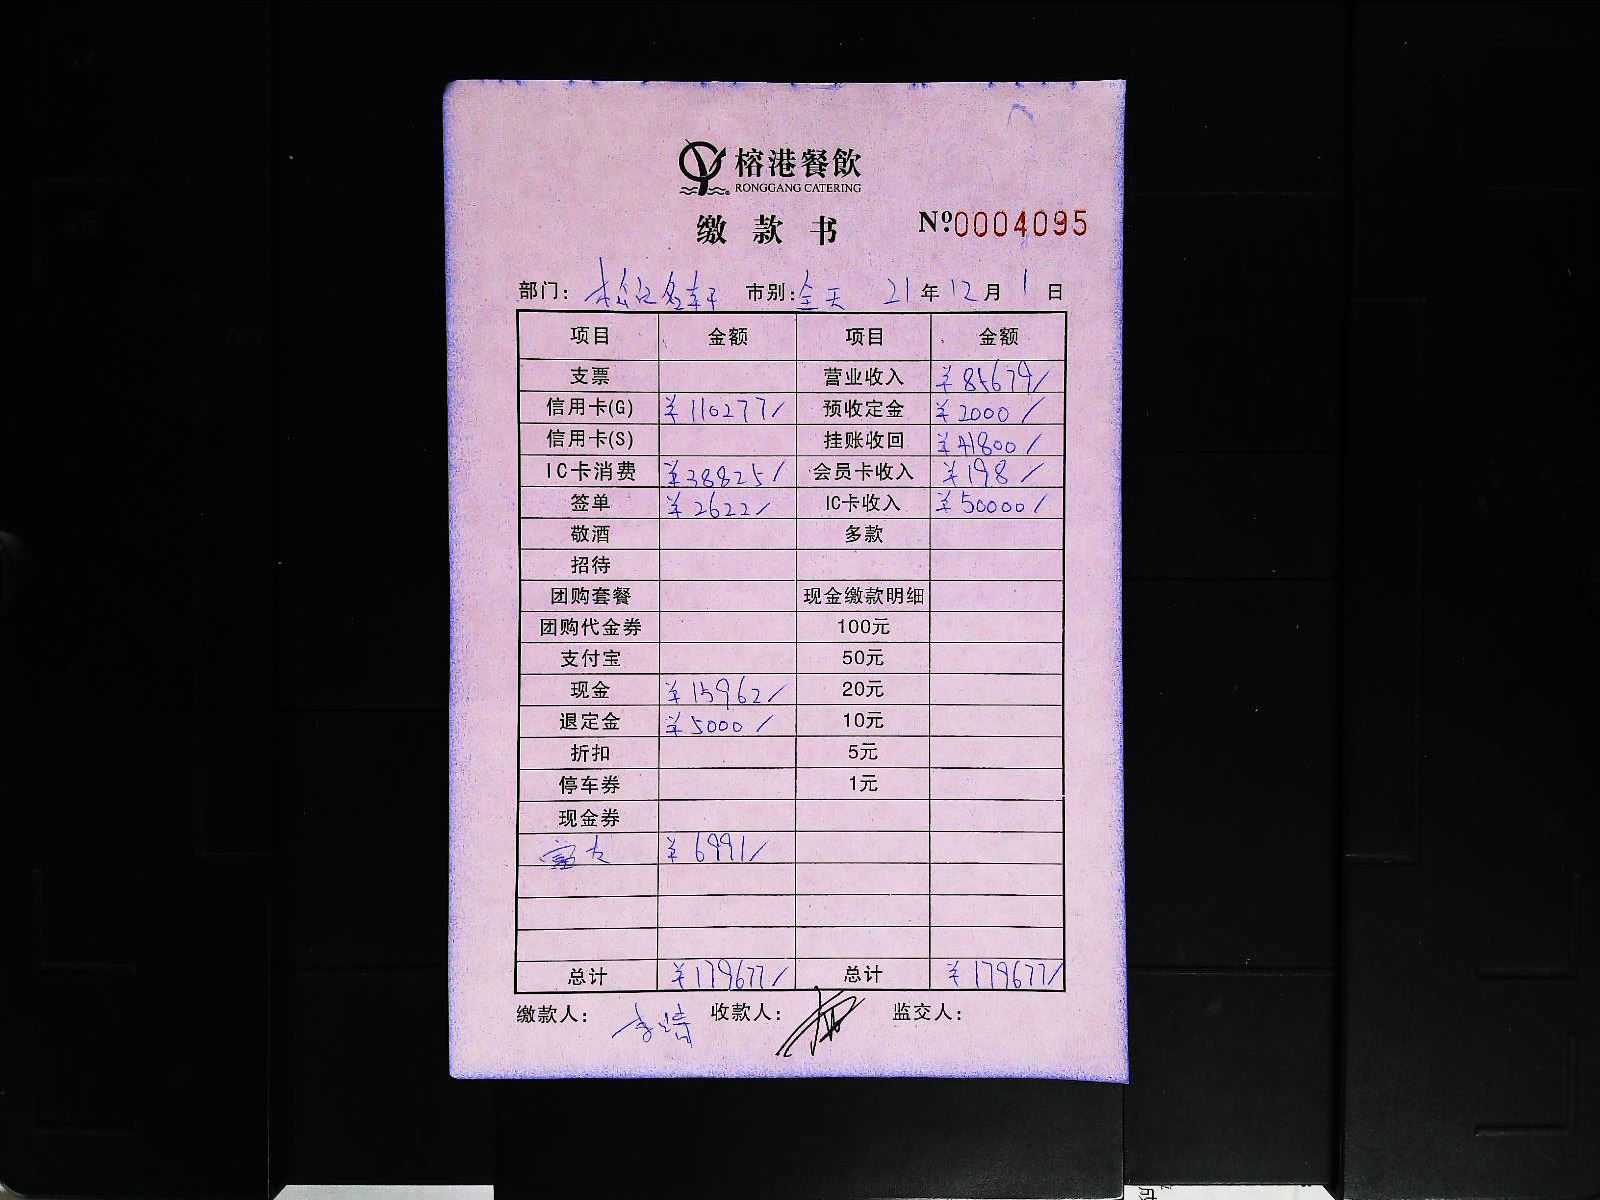 榕港餐飲
RONGGANG CATERING
缴款书 №0004095
部门： 市别：全天 21年12月1日
项目 金额 项目 金额
支票 营业收入 ¥85679/
信用卡(G) ¥110277/ 预收定金 ¥2000/
信用卡(S) 挂账收回 ¥41800/
IC卡消费 ¥38825/ 会员卡收入 ¥198/
签单 ¥2622/ IC卡收入 ¥50000/
敬酒 多款
招待
团购套餐 现金缴款明细
团购代金券 100元
支付宝 50元
现金 ¥15962/ 20元
退定金 ¥5000/ 10元
折扣 5元
停车券 1元
现金券
¥6991/
总计 ¥179677/ 总计 ¥179677/
缴款人： 收款人： 监交人：